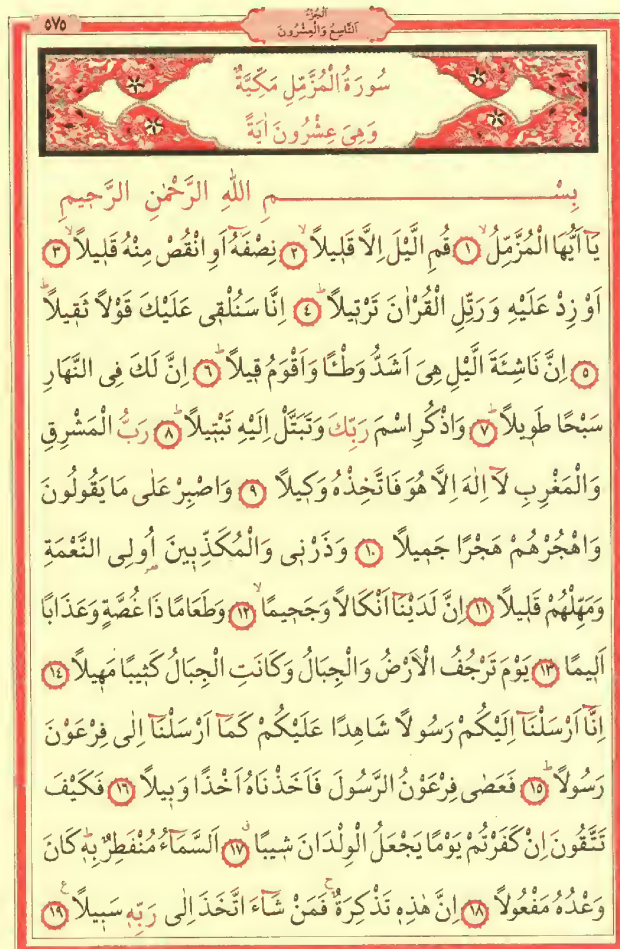 ٥٧٥
اَلْجُزْءُ
اَلتَّاسِعُ وَالْعِشْرُونَ
سُورَةُ الْمُزَّمِّلِ مَكِّيَّةٌ
وَهِىَ عِشْرُونَ اٰيَةً
بِسْــــــــــــــــــمِ اللّٰهِ الرَّحْمٰنِ الرَّحٖيمِ
يَٓا اَيُّهَا الْمُزَّمِّلُۙ ﴿١﴾ قُمِ الَّيْلَ اِلَّا قَلٖيلًاۙ ﴿٢﴾ نِصْفَهُٓ اَوِ انْقُصْ مِنْهُ قَلٖيلًاۙ ﴿٣﴾
اَوْ زِدْ عَلَيْهِ وَرَتِّلِ الْقُرْاٰنَ تَرْتٖيلًاؕ ﴿٤﴾ اِنَّا سَنُلْقٖى عَلَيْكَ قَوْلًا ثَقٖيلًاؕ
﴿٥﴾ اِنَّ نَاشِئَةَ الَّيْلِ هِىَ اَشَدُّ وَطْـًٔا وَاَقْوَمُ قٖيلًاؕ ﴿٦﴾ اِنَّ لَكَ فِى النَّهَارِ
سَبْحًا طَوٖيلًاؕ ﴿٧﴾ وَاذْكُرِ اسْمَ رَبِّكَ وَتَبَتَّلْ اِلَيْهِ تَبْتٖيلًاؕ ﴿٨﴾ رَبُّ الْمَشْرِقِ
وَالْمَغْرِبِ لَٓا اِلٰهَ اِلَّا هُوَ فَاتَّخِذْهُ وَكٖيلًا ﴿٩﴾ وَاصْبِرْ عَلٰى مَا يَقُولُونَ
وَاهْجُرْهُمْ هَجْرًا جَمٖيلًا ﴿١٠﴾ وَذَرْنٖى وَالْمُكَذِّبٖينَ اُولِى النَّعْمَةِ
وَمَهِّلْهُمْ قَلٖيلًا ﴿١١﴾ اِنَّ لَدَيْنَٓا اَنْكَالًا وَجَحٖيمًاۙ ﴿١٢﴾ وَطَعَامًا ذَا غُصَّةٍ وَعَذَابًا
اَلٖيمًا ﴿١٣﴾ يَوْمَ تَرْجُفُ الْاَرْضُ وَالْجِبَالُ وَكَانَتِ الْجِبَالُ كَثٖيبًا مَهٖيلًا ﴿١٤﴾
اِنَّٓا اَرْسَلْنَٓا اِلَيْكُمْ رَسُولًا شَاهِدًا عَلَيْكُمْ كَمَٓا اَرْسَلْنَٓا اِلٰى فِرْعَوْنَ
رَسُولًاؕ ﴿١٥﴾ فَعَصٰى فِرْعَوْنُ الرَّسُولَ فَاَخَذْنَاهُ اَخْذًا وَبٖيلًا ﴿١٦﴾ فَكَيْفَ
تَتَّقُونَ اِنْ كَفَرْتُمْ يَوْمًا يَجْعَلُ الْوِلْدَانَ شٖيبًاۗ ﴿١٧﴾ اَلسَّمَٓاءُ مُنْفَطِرٌ بِهٖؕ كَانَ
وَعْدُهُ مَفْعُولًا ﴿١٨﴾ اِنَّ هٰذِهٖ تَذْكِرَةٌۚ فَمَنْ شَٓاءَ اتَّخَذَ اِلٰى رَبِّهٖ سَبٖيلًا ﴿١٩﴾